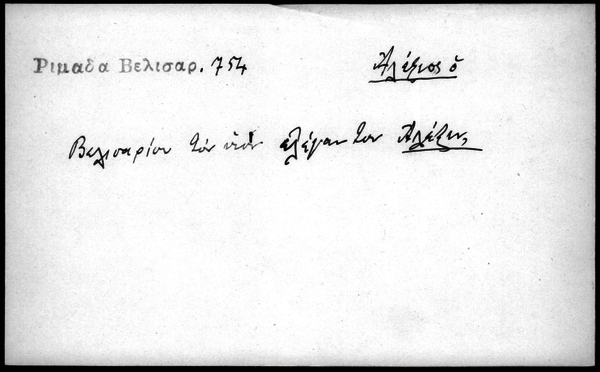 Ριμαδα Βελισαρ. 754 Ἀλέξιος ὁ
Βελισαρίου τὸν υἱὸν ἐλέγαν τον Ἀλέξιν,